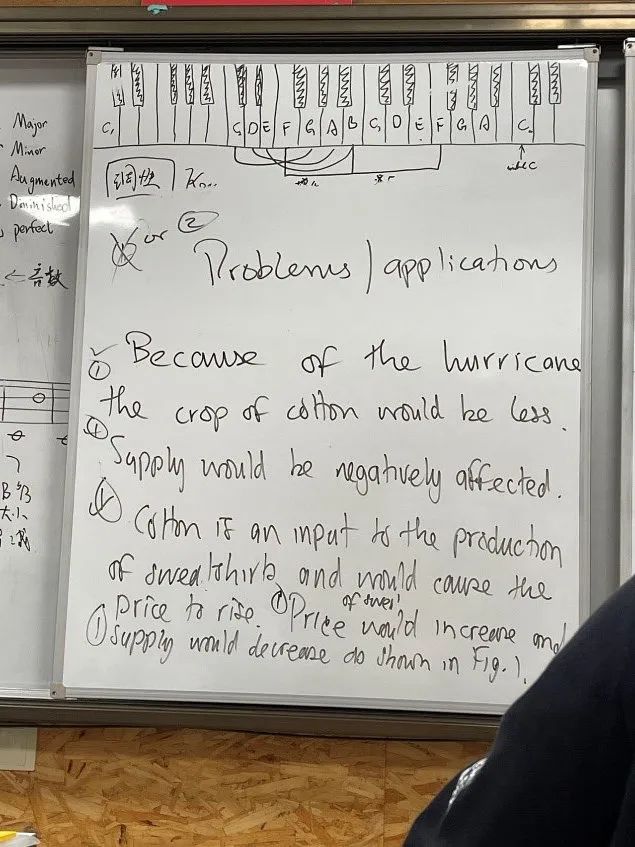 Major
Minor
Augmented
Diminished
perfect
←音数
C D E F G A B C D E F G A C
K...
or ②
Problems / applications
① Because of the hurricane
the crop of cotton would be less.
① Supply would be negatively affected.
① Cotton is an input to the production
of sweatshirts and would cause the
price to rise. ① Price of swea would increase and
① supply would decrease as shown in Fig. 1.